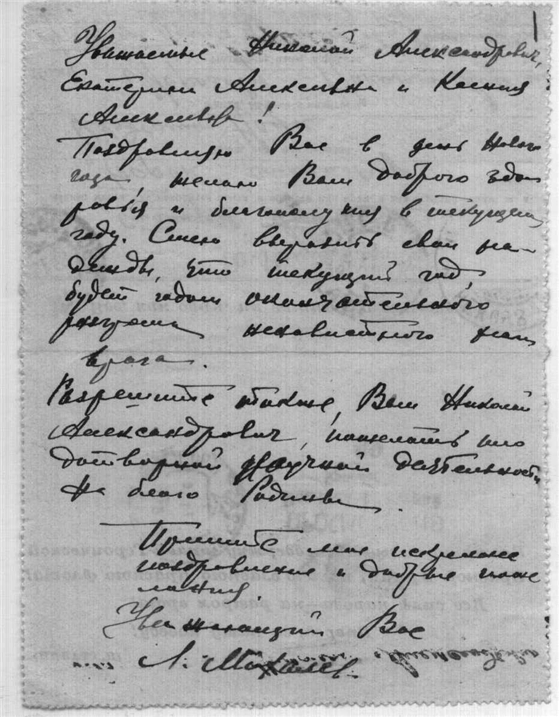 1
Уважаемые Николай Александрович,
Екатерина Алексеевна и Ксения
Алексеевна!
Поздравляю Вас в день Нового
года, желаю Вам доброго здо
ровья и благополучия в текущем
году. Смею выразить свои на-
дежды, что текущий год
будет годом окончательного
разгрома ненавистного нам
врага.
Разрешите также, Вам Николай
Александрович, пожелать пло
дотворной научной деятельности
на благо Родины.
Примите мое искреннее
поздравление и добрые поже
лания.
Уважающий Вас
Л.